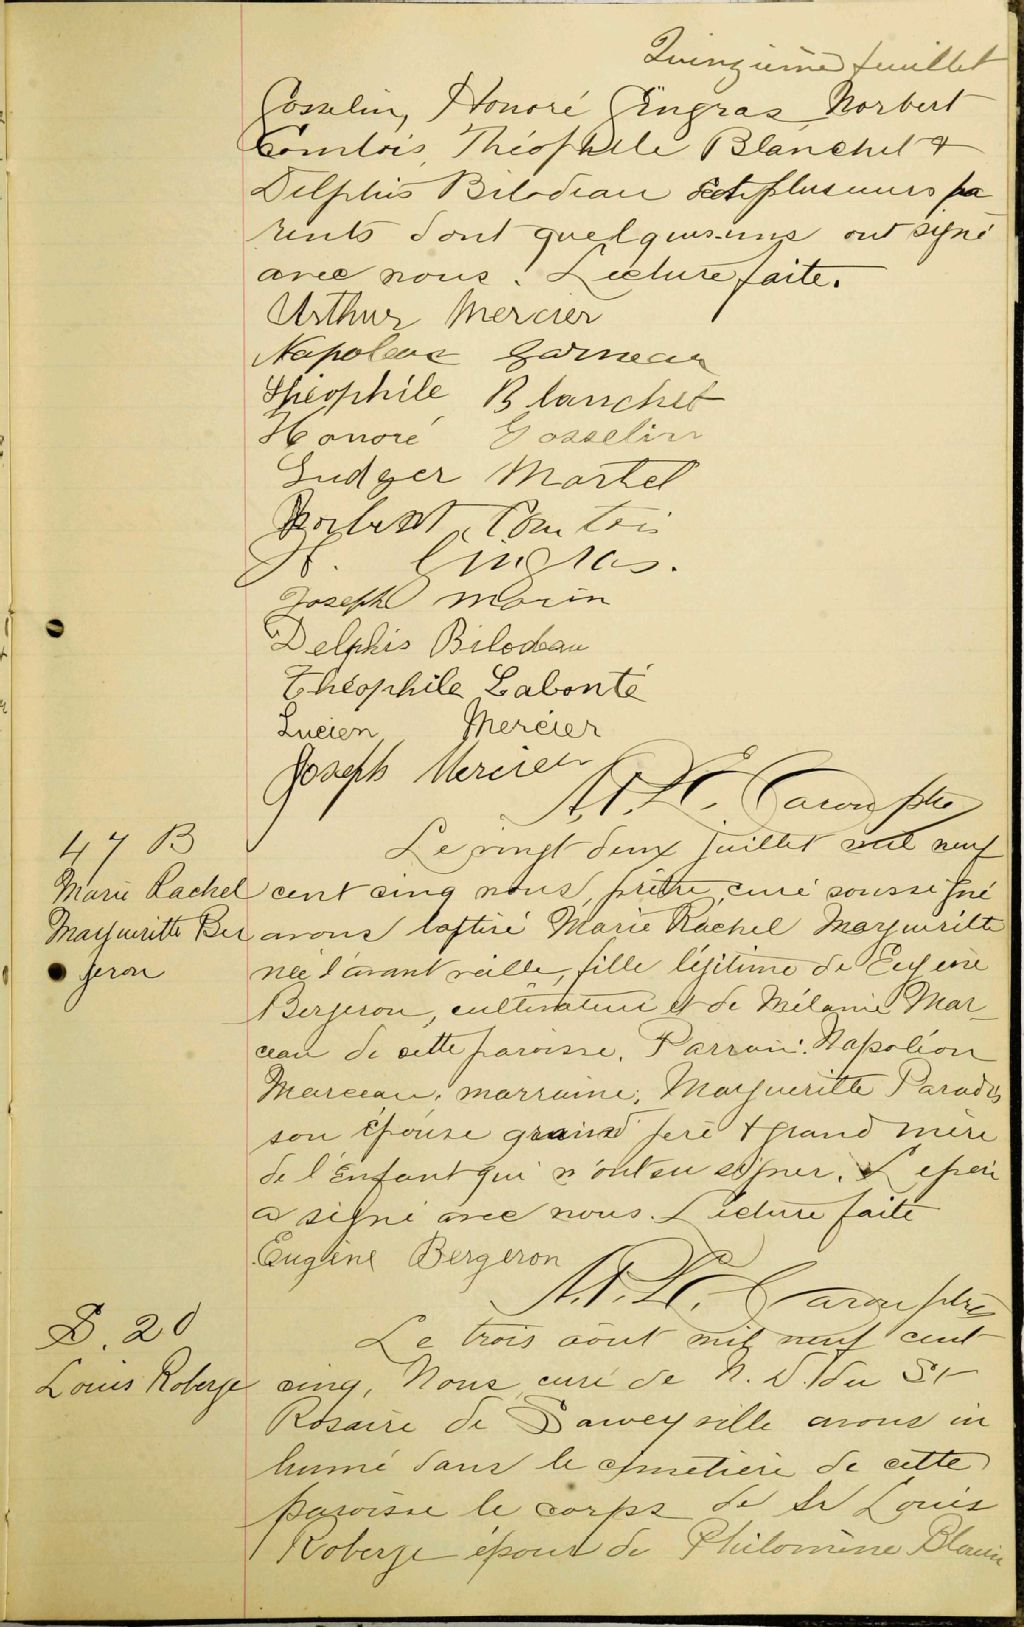 Quinzième feuillet
Gosselin, Honoré Gingras Norbert
Comtois, Théophile Blanchet &
Delphis Bilodeau et plusieurs pa
rents dont quelques-uns ont signé
avec nous. Lecture faite.
Arthur Mercier
Napoleon Garneau
Théophile Blanchet
Honoré Gosselin
Ludger Martel
Norbert Comtois
H. Gingras.
Joseph Morin
Delphis Bilodeau
Théophile Labonté
Lucien Mercier
Joseph Mercier
Caron ptre
47 B
Marie Rachel
Margueritte Ber
geron
Le vingt deux juillet mil neuf
cent cinq nous, prêtre, curé soussigné
avons baptisé Marie Rachel Margueritte
née l'avant veille, fille légitime de Eugène
Bergeron, cultivateur et de Mélanie Mar-
ceau de cette paroisse. Parrain: Napoléon
Marceau, marraine, Margueritte Paradis
son épouse grand père & grand mère
de l'enfant qui n'ont su signer. Le père
a signé avec nous. Lecture faite
Eugène Bergeron
Caron ptre
S. 20
Louis Roberge
Le trois aôut mil neuf cent
cinq, Nous curé de N. D. du St
Rosaire de Saweyville avons in
humé dans le cimetière de cette
paroisse le corps de Sr Louis
Roberge époux de Philomène Blouin